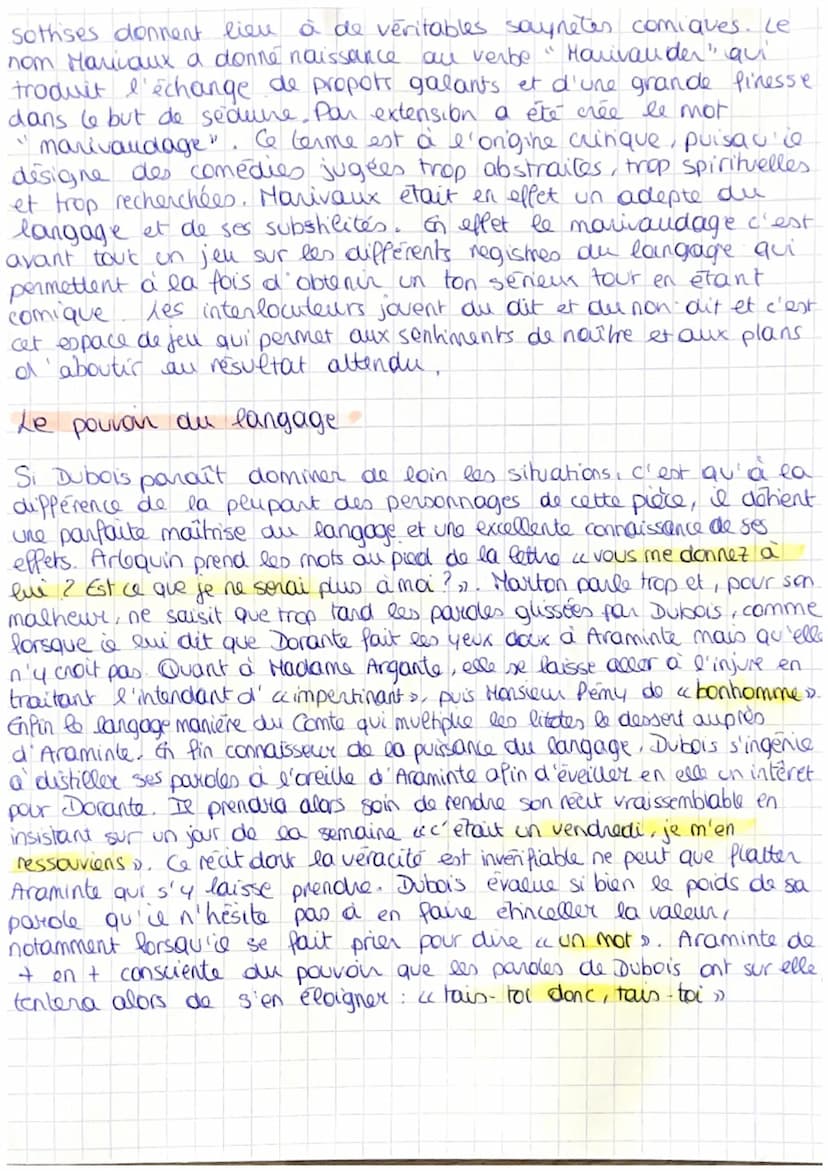 sottises donnent lieu à de véritables saynètes comiques. Le
nom Marivaux a donné naissance au verbe "Marivauder" qui
traduit l'échange de propots galants et d'une grande finesse
dans le but de séduire. Par extension a été crée le mot
"marivaudage". Ce terme est à l'origine critique, puisqu'il
désigne des comédies jugées trop abstraites, trop spirituelles
et trop recherchées. Marivaux était en effet un adepte du
langage et de ses subtilités. En effet le marivaudage c'est
avant tout un jeu sur les différents registres du langage qui
permettent à la fois d'obtenir un ton sérieux tout en étant
comique. Les interlocuteurs jouent du dit et du non-dit et c'est
cet espace de jeu qui permet aux sentiments de naître et aux plans
d'aboutir au résultat attendu.
Le pouvoir du langage
Si Dubois paraît dominer de loin les situations, c'est qu'à la
différence de la plupart des personnages de cette pièce, il détient
une parfaite maîtrise du langage et une excellente connaissance de ses
effets. Arlequin prend les mots au pied de la lettre « vous me donnez à
lui ? Est ce que je ne serai plus à moi ? ». Marton parle trop et, pour son
malheur, ne saisit que trop tard les paroles glissées par Dubois, comme
lorsque il lui dit que Dorante fait les yeux doux à Araminte mais qu'elle
n'y croit pas. Quant à Madame Argante, elle se laisse aller à l'injure en
traitant l'intendant d' « impertinant », puis Monsieur Rémy de « bonhomme ».
Enfin le langage maniéré du Comte qui multiplie les litotes le dessert auprès
d'Araminte. En fin connaisseur de la puissance du langage, Dubois s'ingénie
à distiller ses paroles à l'oreille d'Araminte afin d'éveiller en elle un intérêt
pour Dorante. Il prendra alors soin de rendre son récit vraissemblable en
insistant sur un jour de la semaine « c'était un vendredi, je m'en
ressouviens ». Ce récit dont la véracité est invérifiable ne peut que flatter
Araminte qui s'y laisse prendre. Dubois évalue si bien le poids de sa
parole qu'il n'hésite pas à en faire étinceller la valeur,
notamment lorsqu'il se fait prier pour dire « un mot ». Araminte de
+ en + consciente du pouvoir que les paroles de Dubois ont sur elle
tentera alors de s'en éloigner : « tais-toi donc, tais-toi »